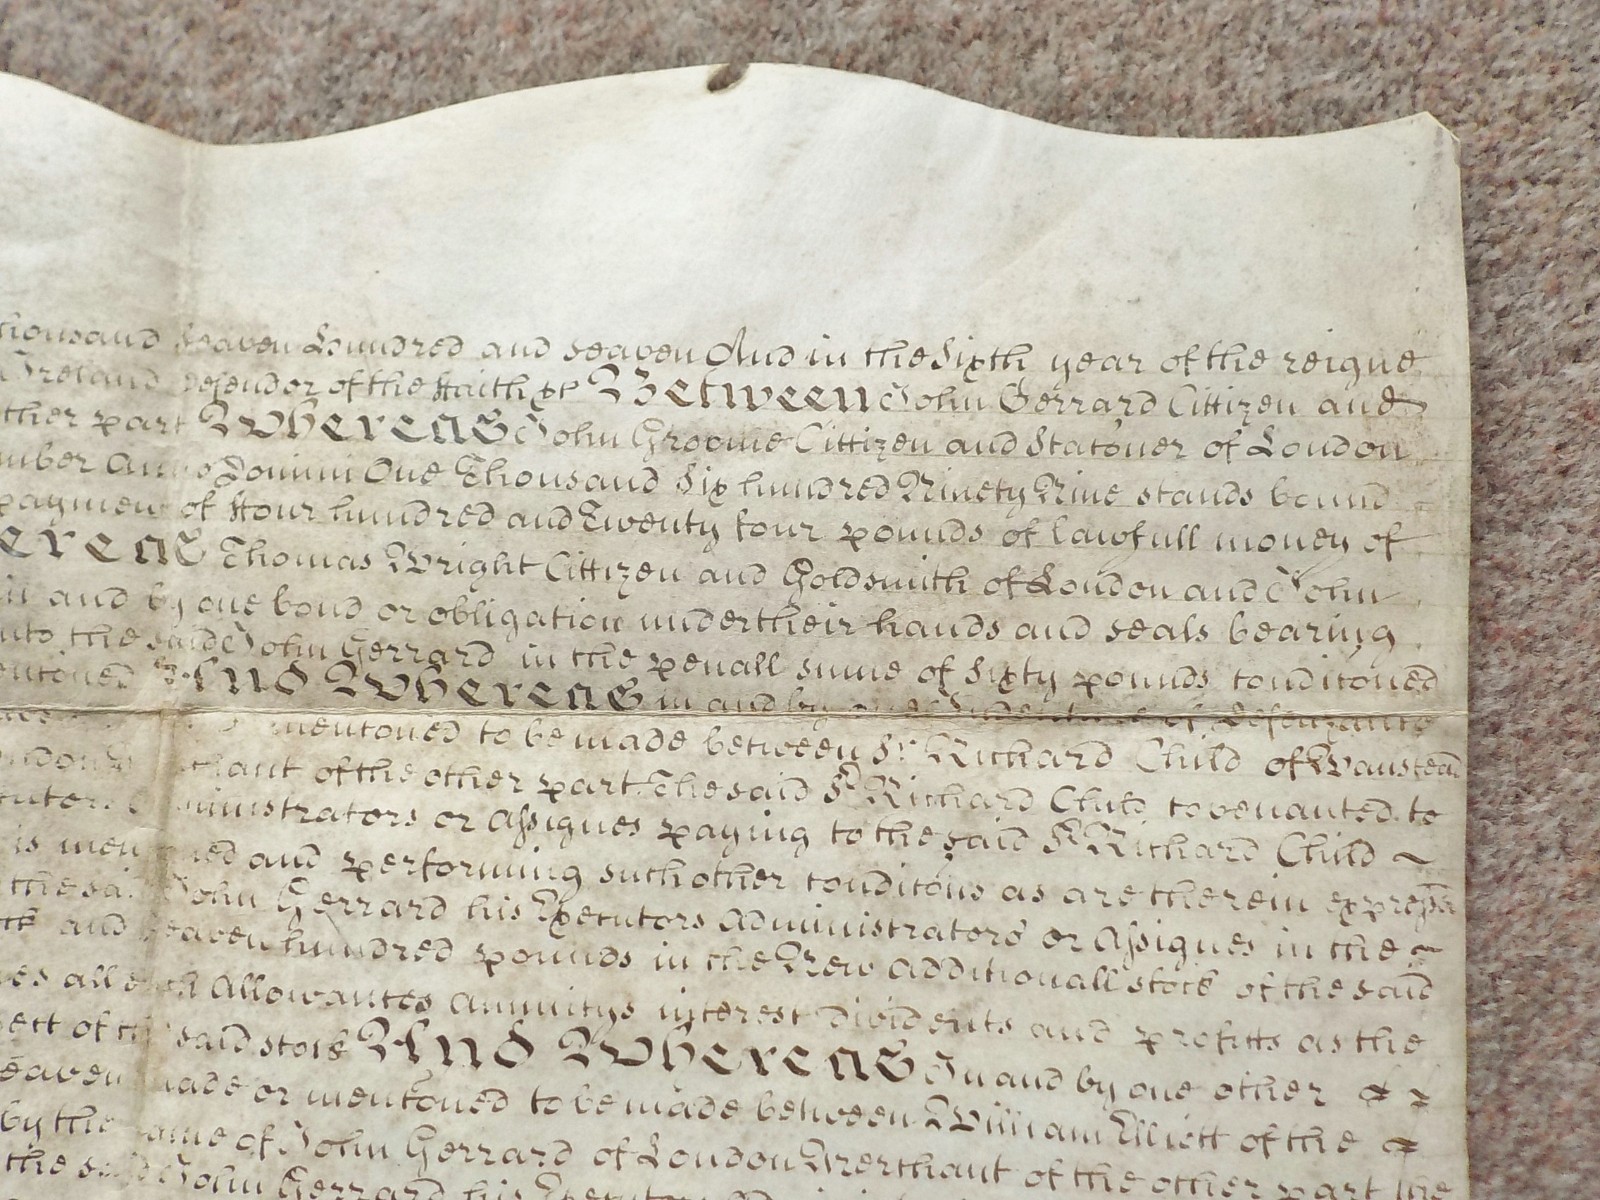 thousand seaven Hundred and seaven And in the Sixth year of the reigne
Ireland Defendor of the ffaith &c Between John Gerrard Cittizen and
ther part Whereas John Groome Cittizen and Stac̃oner of London
mber Anno Domini One Thousand Six hundred Ninety Nine stands bound
payment of ffour hundred and Twenty four pounds of lawfull money of
ereas Thomas Wright Cittizen and Goldsmith of London and John
in and by one bond or obligation under their hands and seals bearing
nto the said John Gerrard in the penall sume of Sixty pounds condic̃oned
entc̃oned And Whereas in and by one Indenture of Defeazance
mentc̃oned to be made between Sr. Richard Child of Wanstead
ondon Merchant of the other part The said Sr Richard Child covenanted to
cutors Administrators or Assignes paying to the said Sr Richard Child
is mentioned and performing such other condic̃ons as are therein expressed
the said John Gerrard his Executors Administrators or Assignes in the
ck and seaven hundred pounds in the New Additionall stock of the said
es all such Allowances annuitys interest Dividents and profitts as the
ect of the said stock And Whereas In and by one other
eaven made or mentc̃oned to be made between William Elliott of the
by the name of John Gerrard of London Merchant of the other part the
the said John Gerrard his Executors